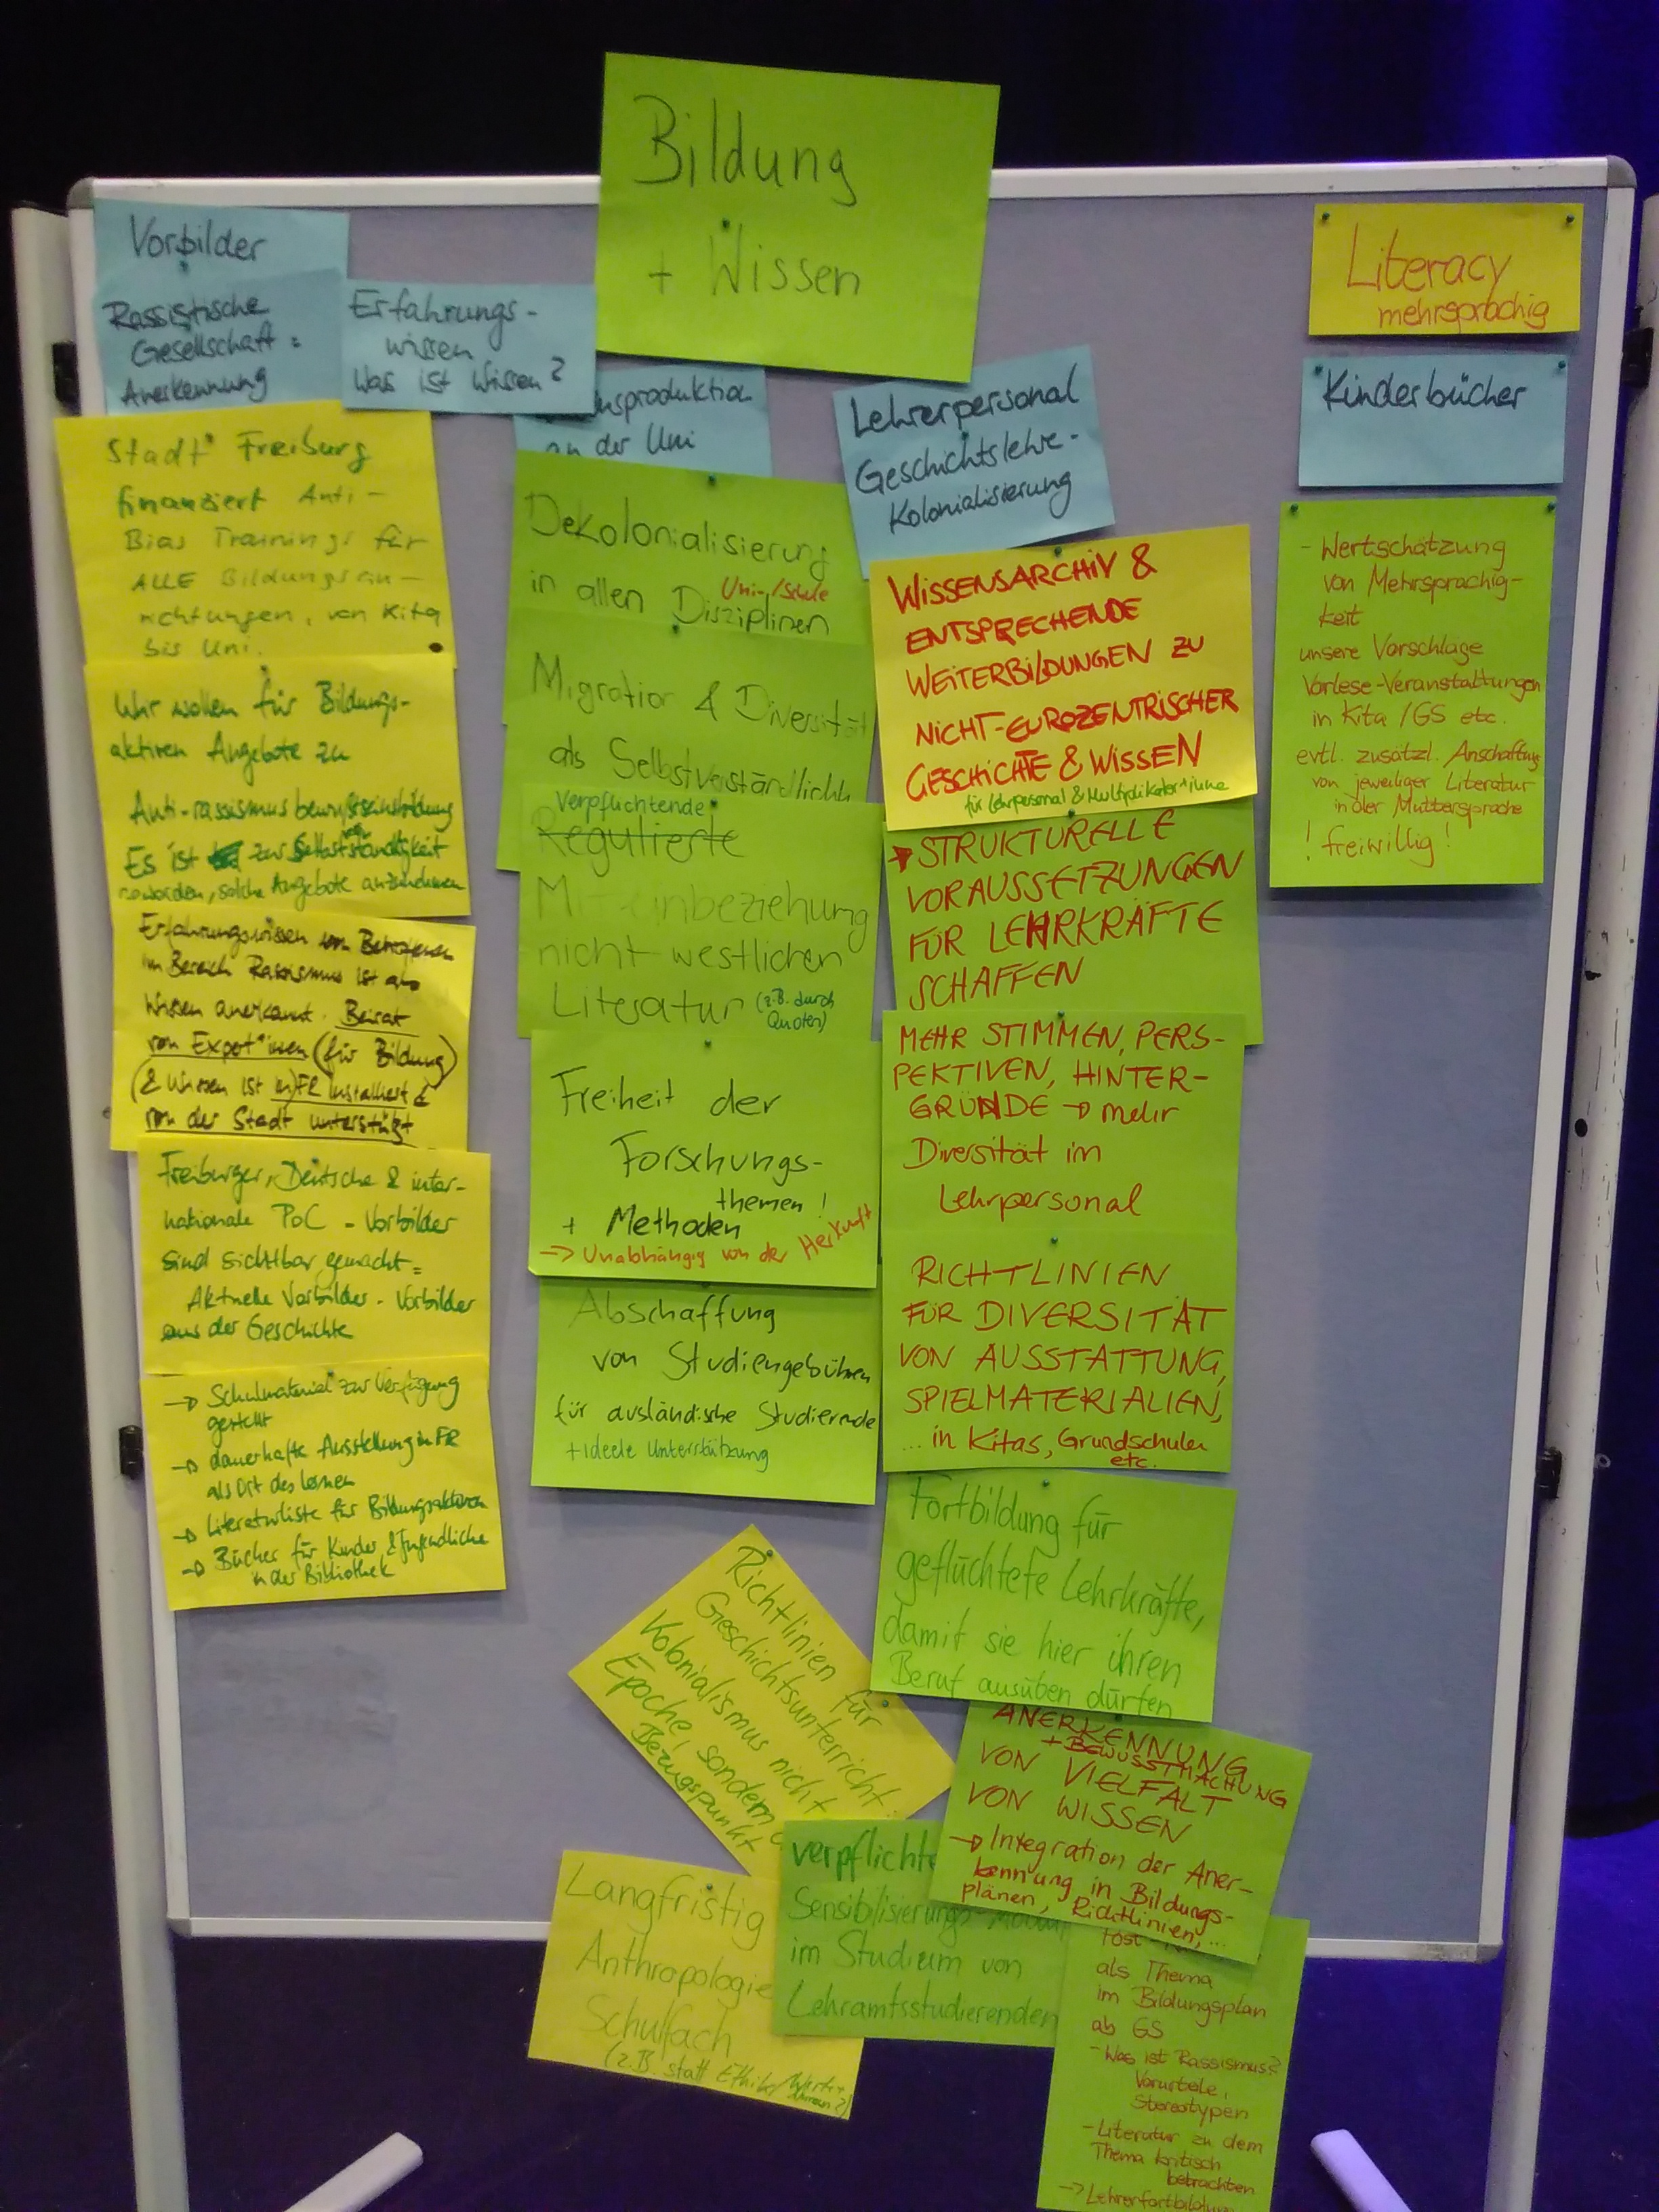 Bildung
+ Wissen
Vorbilder
Rassistische
Gesellschaft =
Anerkennung
Erfahrungs-
wissen
Was ist Wissen?
Stadt Freiburg
finanziert Anti-
Bias Trainings für
ALLE Bildungsein-
richtungen, von Kita
bis Uni.
Wir wollen für Bildungs-
aktiven Angebote zu
Anti-rassismus bewusstseinsbildung
Es ist zur Selbstständigkeit
geworden, solche Angebote anzunehmen
Erfahrungswissen von Betroffenen
im Bereich Rassismus ist als
Wissen anerkannt. Beirat
von Expert*innen (für Bildung)
(& Wissen ist in) FR installiert &
von der Stadt unterstützt
Freiburger, Deutsche & inter-
nationale PoC - Vorbilder
sind sichtbar gemacht =
Aktuelle Vorbilder - Vorbilder
aus der Geschichte
→ Schulmaterial zur Verfügung
gestellt
→ dauerhafte Ausstellung in FR
als Ort des Lernen
→ Literaturliste für Bildungsaktiven
→ Bücher für Kinder & Jugendliche
in der Bibliothek
nsproduktion
an der Uni
Dekolonialisierung
in allen Uni-/Schule
Disziplinen
Migration & Diversität
als Selbstverständlichk
Verpflichtende
Regulierte
Miteinbeziehung
nicht westlichen
Literatur (z.B. durch
Quoten)
Freiheit der
Forschungs-
themen!
+ Methoden
→ Unabhängig von der Herkunft
Abschaffung
von Studiengebühren
für ausländische Studierende
+ ideele Unterstützung
Lehrerpersonal
Geschichtslehre-
Kolonialisierung
WISSENSARCHIV &
ENTSPRECHENDE
WEITERBILDUNGEN ZU
NICHT-EUROZENTRISCHER
GESCHICHTE & WISSEN
für Lehrpersonal & Multiplikator*inne
→ STRUKTURELLE
VORAUSSETZUNGEN
FÜR LEHRKRÄFTE
SCHAFFEN
MEHR STIMMEN, PERS-
PEKTIVEN, HINTER-
GRÜNDE → mehr
Diversität im
Lehrpersonal
RICHTLINIEN
FÜR DIVERSITÄT
VON AUSSTATTUNG,
SPIELMATERIALIEN,
... in Kitas, Grundschulen
etc.
Fortbildung für
geflüchtete Lehrkräfte,
damit sie hier ihren
Beruf ausüben dürfen
ANERKENNUNG
+ BEWUSSTMACHUNG
VON VIELFALT
VON WISSEN
→ Integration der Aner-
kennung in Bildungs-
plänen, Richtlinien, ...
Richtlinien für
Geschichtsunterricht:
Kolonialismus nicht
Epoche, sondern
Bezugspunkt
Langfristig
Anthropologie
Schulfach
(z.B. statt Ethik/
verpflichte
Sensibilisierungs-Modul
im Studium von
Lehramtsstudierenden
als Thema
im Bildungsplan
ab GS
- Was ist Rassismus?
Vorurteile,
Stereotypen
- Literatur zu dem
Thema kritisch
betrachten
→ Lehrerfortbildung
Literacy
mehrsprachig
Kinderbücher
- Wertschätzung
von Mehrsprachig-
keit
unsere Vorschläge
Vorlese-Veranstaltungen
in Kita / GS etc.
evtl. zusätzl. Anschaffung
von jeweiliger Literatur
in der Muttersprache
! freiwillig!